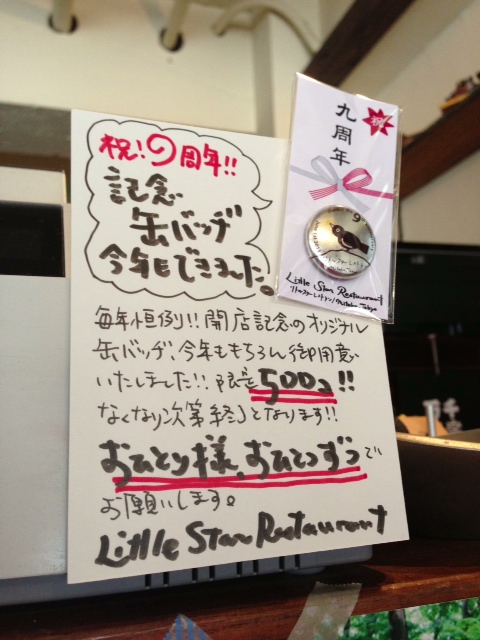 祝!9周年!!
記念
缶バッヂ
今年もできました。
毎年恒例!!開店記念のオリジナル
缶バッヂ、今年ももちろん御用意
いたしました!!限定500コ!!
なくなり次第終了となります!!
おひとり様、おひとつずつで
お願いします。
Little Star Restaurant
祝
九周年
9
Little Star Restaurant
リトルスターレストラン/Mitaka Tokyo